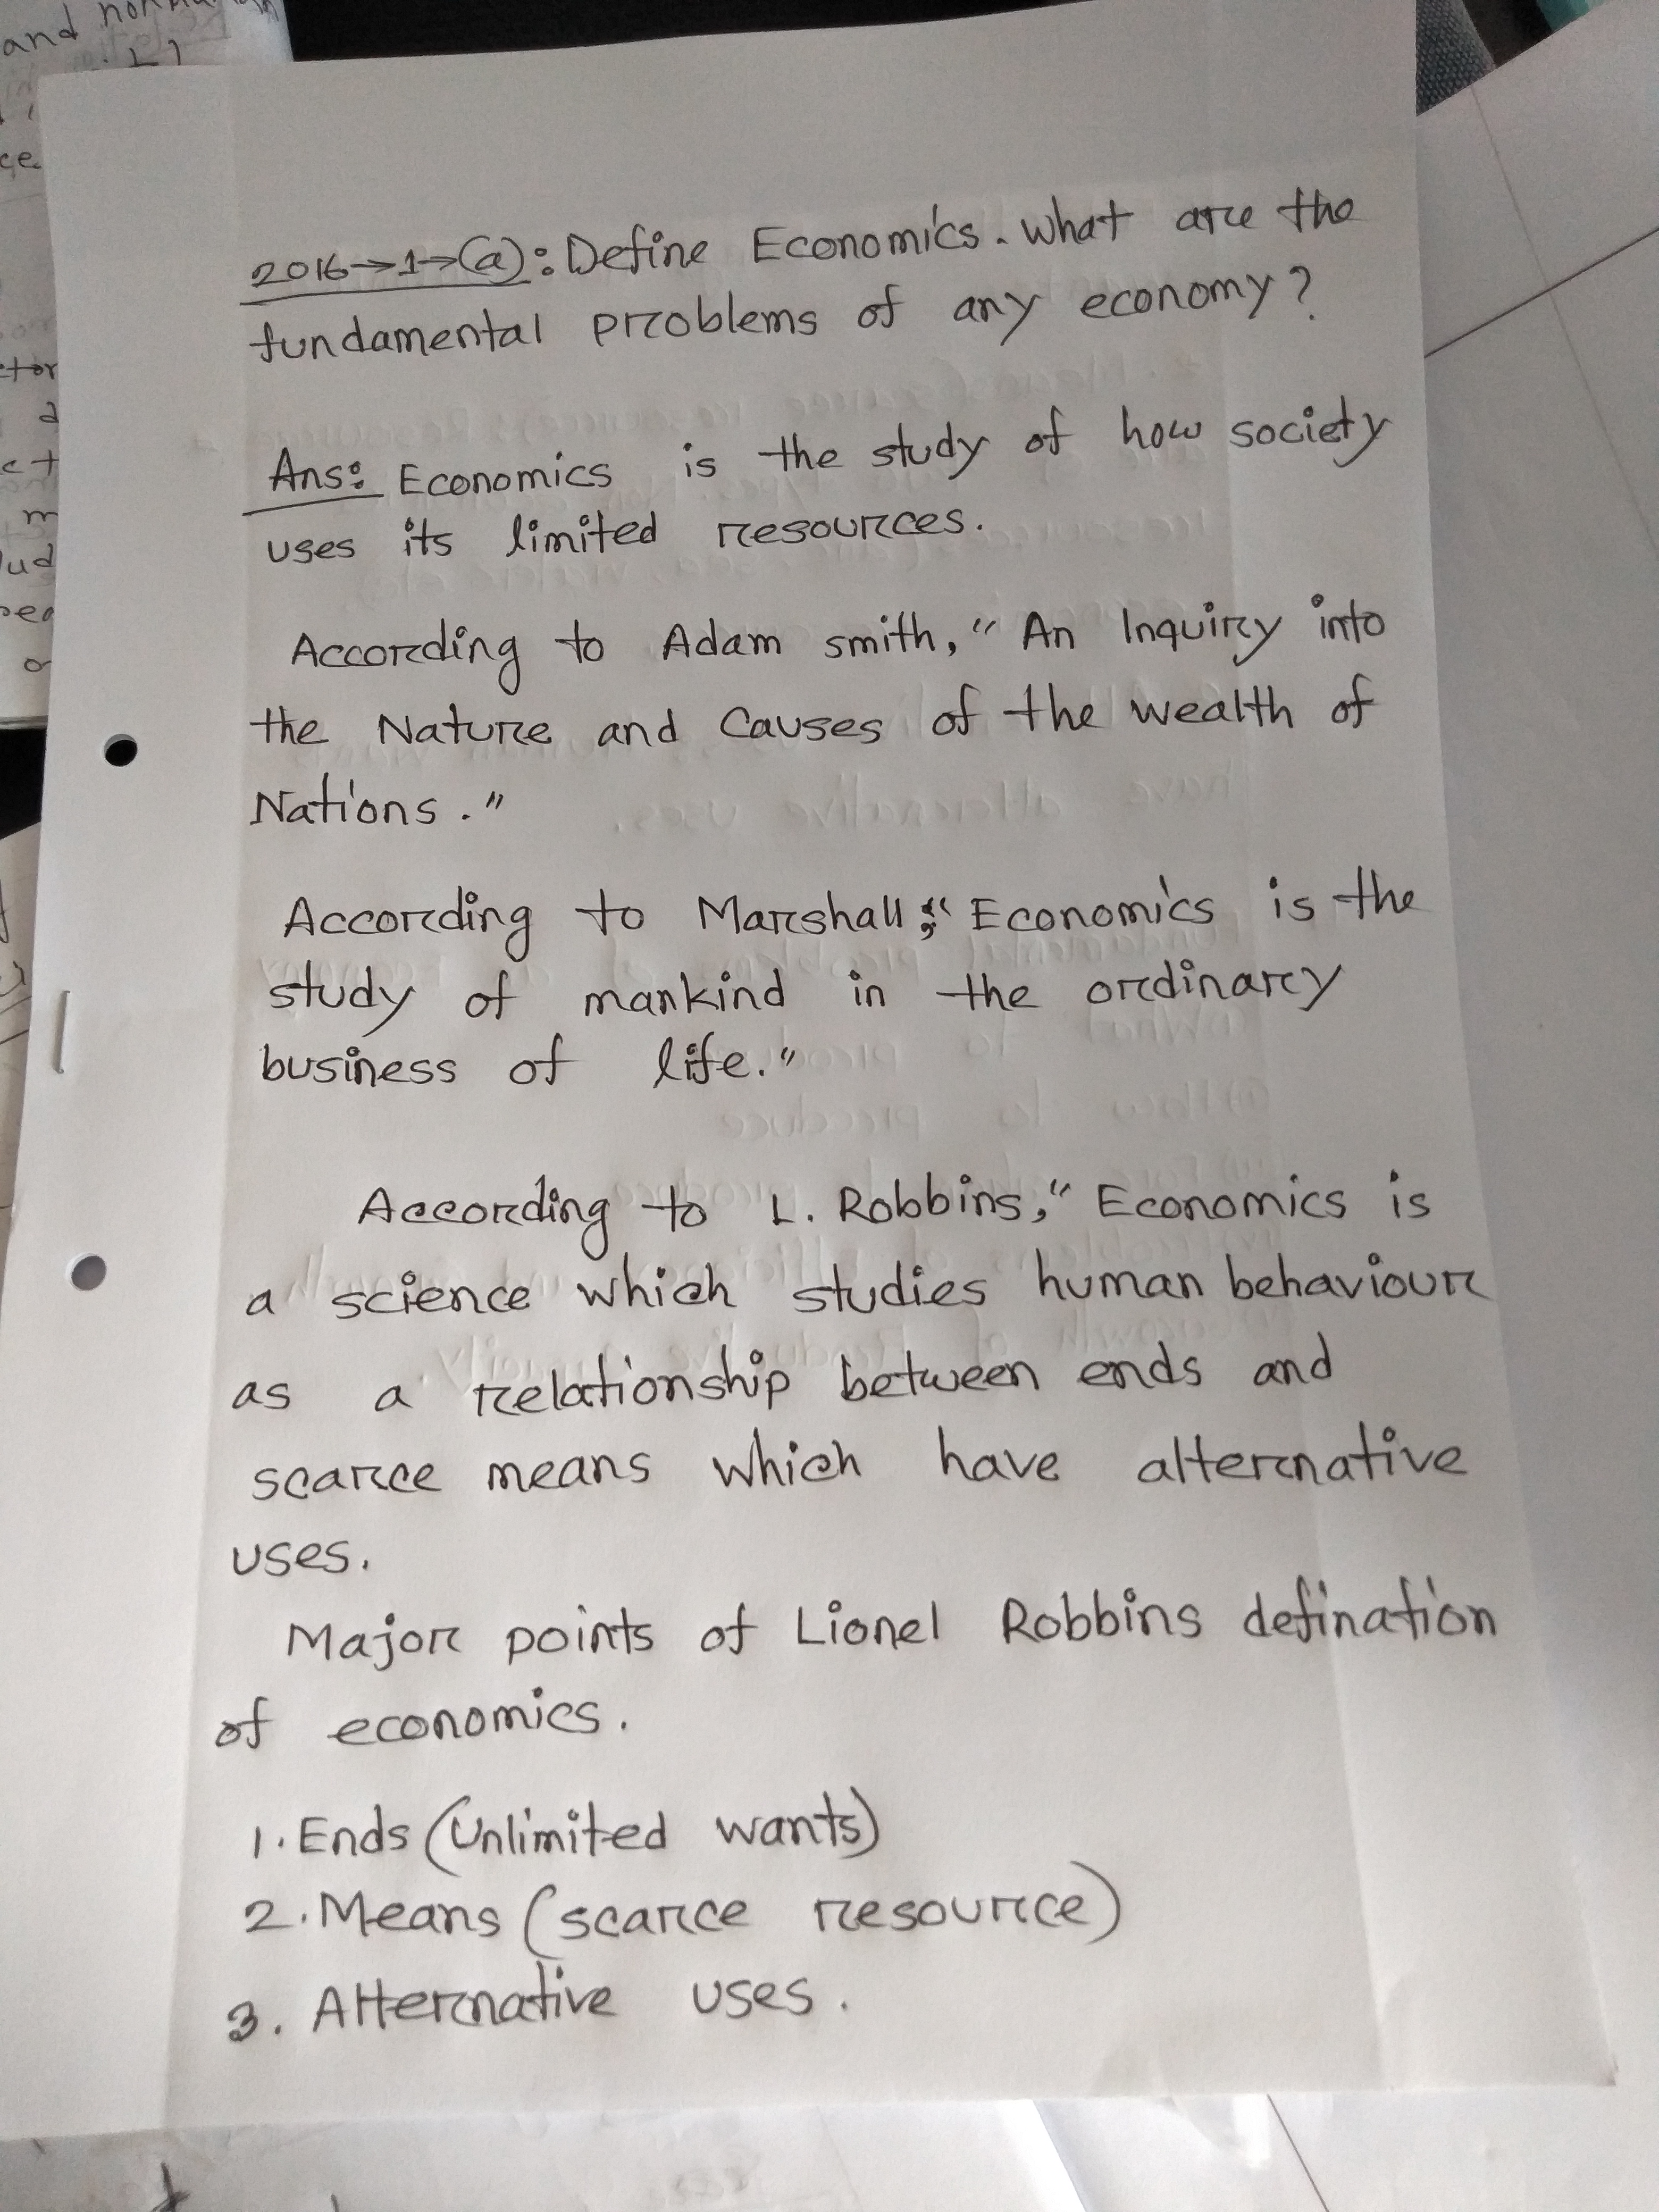 and
ce
ctor
a
ct
m
ud
or
2016→1→(a): Define Economics. What are the
fundamental problems of any economy?
Ans: Economics is the study of how society
uses its limited resources.
According to Adam smith, "An Inquiry into
the Nature and Causes of the wealth of
Nations."
According to Marshall, "Economics is the
study of mankind in the ordinary
business of life."
According to L. Robbins, "Economics is
a science which studies human behaviour
as a relationship between ends and
scarce means which have alternative
uses.
Major points of Lionel Robbins defination
of economics.
1. Ends (Unlimited wants)
2. Means (scarce resource)
3. Alternative uses.